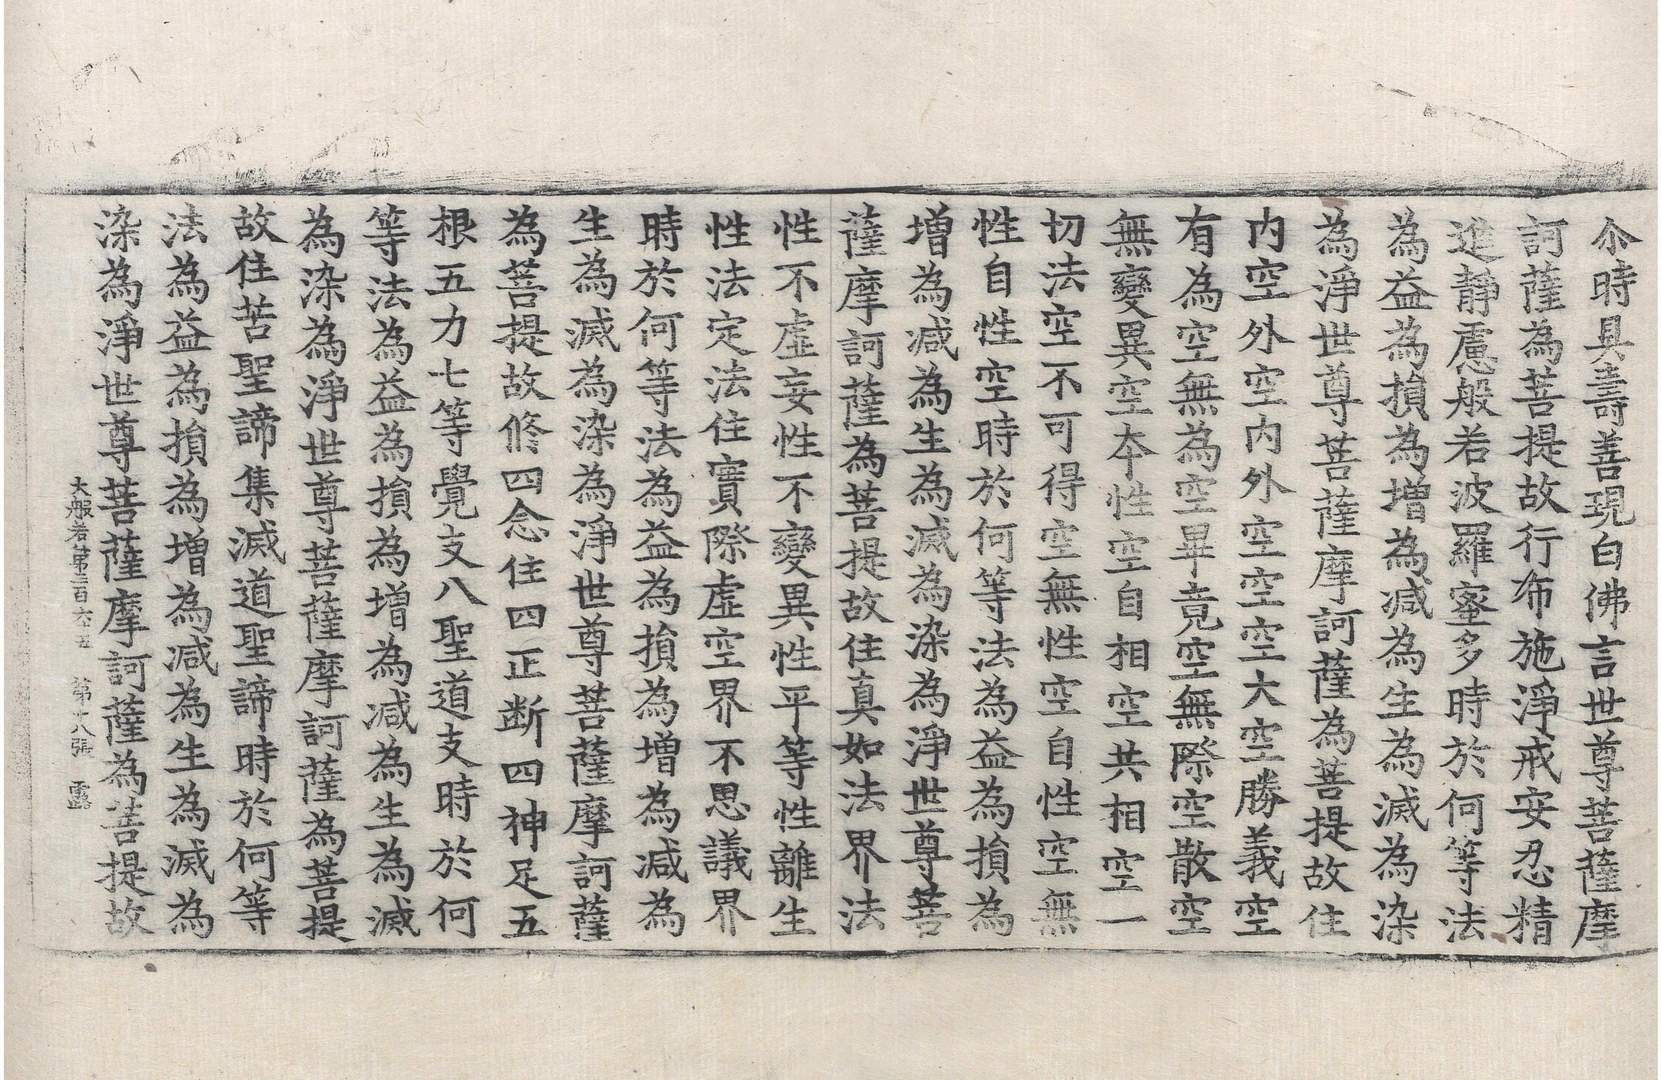 尒時具壽善現白佛言世尊菩薩摩
訶薩為菩提故行布施淨戒安忍精
進靜慮般若波羅蜜多時於何等法
為益為損為增為減為生為滅為染
為淨世尊菩薩摩訶薩為菩提故住
內空外空內外空空空大空勝義空
有為空無為空畢竟空無際空散空
無變異空本性空自相空共相空一
切法空不可得空無性空自性空無
性自性空時於何等法為益為損為
增為減為生為滅為染為淨世尊菩
薩摩訶薩為菩提故住真如法界法
性不虛妄性不變異性平等性離生
性法定法住實際虛空界不思議界
時於何等法為益為損為增為減為
生為滅為染為淨世尊菩薩摩訶薩
為菩提故修四念住四正断四神足五
根五力七等覺支八聖道支時於何
等法為益為損為增為減為生為滅
為染為淨世尊菩薩摩訶薩為菩提
故住苦聖諦集滅道聖諦時於何等
法為益為損為增為減為生為滅為
染為淨世尊菩薩摩訶薩為菩提故
大般若第三百六十五 第十八張 露